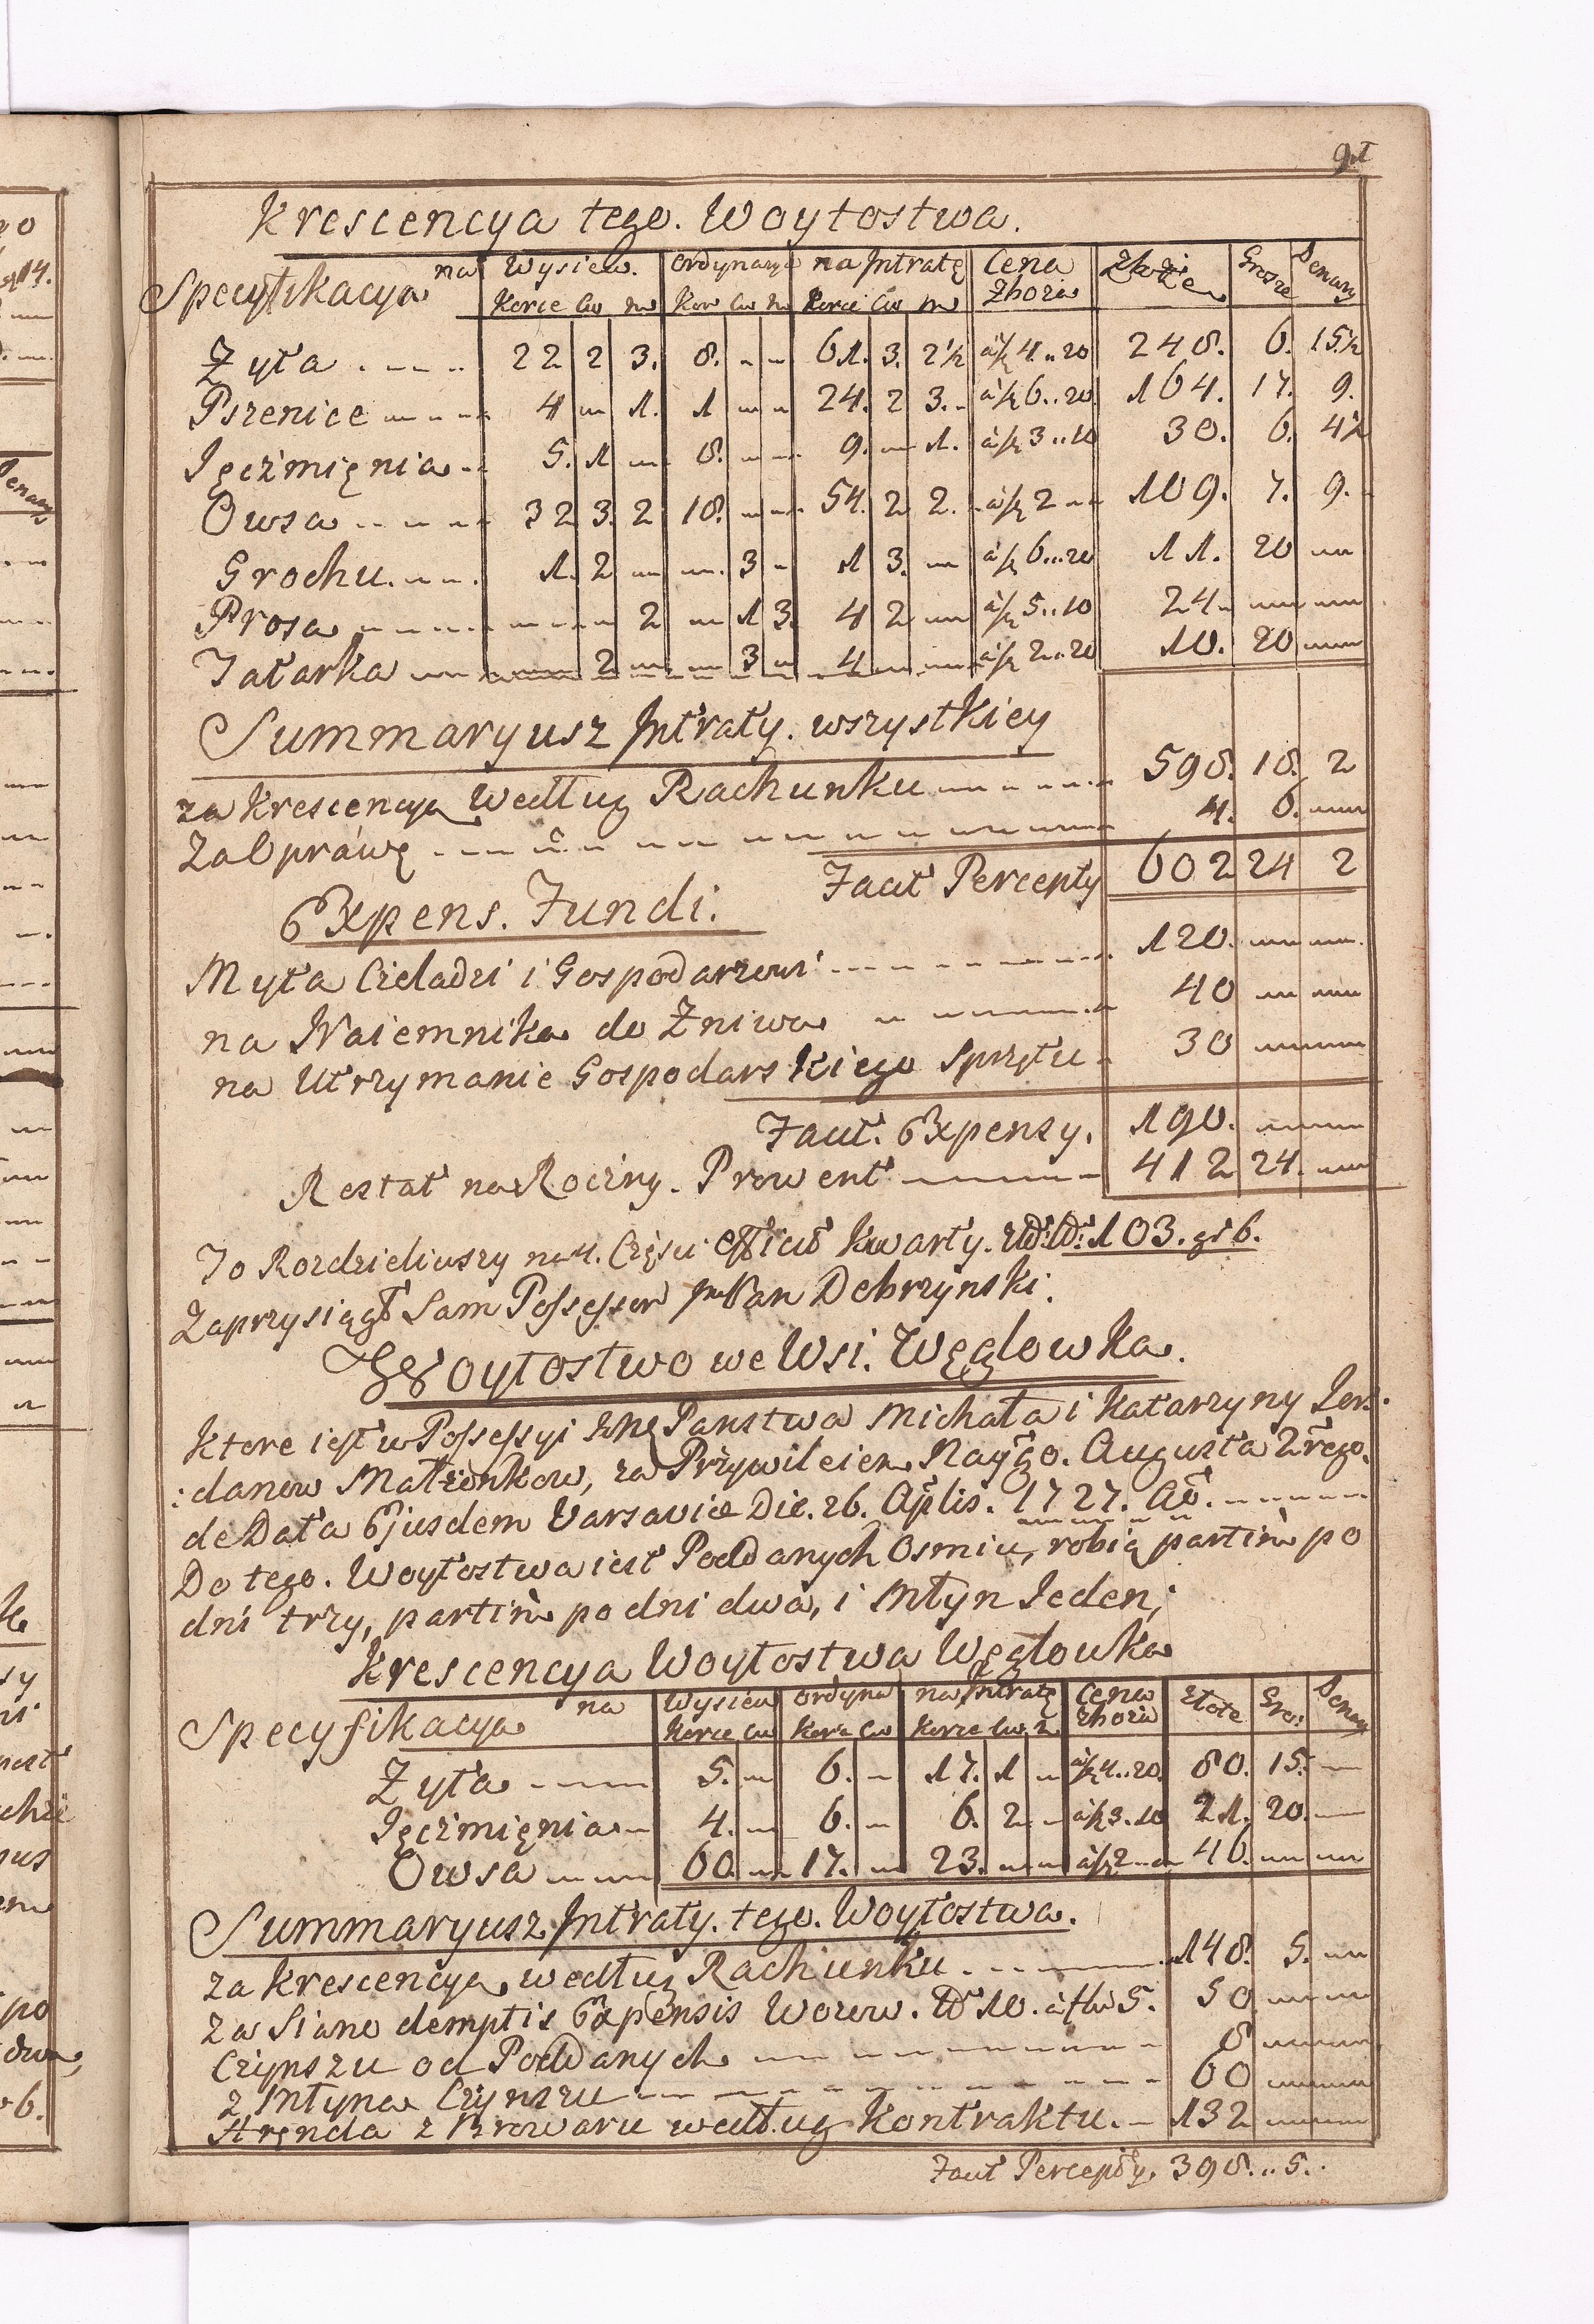 91
Krescencya tego. Woytostwa.
Specyfikacya na Wysiew. Ordynarya na Intratę Cena Zboża Złote Grosze Denary
Korce Cw m Kor Cw m Korce Cw m
Zyta 22 2 3. 8. 61. 3. 2½ à f 4..20 248. 6. 15½
Pszenice 4 1. 1 24. 2 3. à f 6..20 164. 17. 9.
Jęczmięnia 5. 1 8. 9. 1. à f 3..10 30. 6. 4½
Owsa 32 3. 2 18. 54. 2 2. à f 2 109. 7. 9.
Grochu. 1. 2 3 1 3. à f 6..20 11. 20
Prosa 2 1 3. 4 2 à f 5..10 24
Tatarka 2 3 4 à f 2..20 10. 20
Summaryusz Intraty. wszystkiey
za Krescencyą według Rachunku 598. 18. 2
Za Oprawę 4. 6.
Facit Percepty 602 24 2
Expens. Fundi.
Myta Czeladzi i Gospodarzowi 120.
na Naiemnika do Żniwa 40
na Utrzymanie Gospodarskiego Sprzętu 30
Facit. Expensy. 190.
Restat na Roczny. Prowent 412 24.
To Rozdzieliwszy na 4. Części efficit Kwarty. 103. gr 6.
Zaprzysiągł Sam Possessor Pan Debrzynski.
Woytostwo we Wsi. Węglowka.
Ktore iest w Possessyi Panstwa Michała i Katarzyny Jor:
:danow Małżonkow, za Przywileiem Nayo. Augusta 2rego.
de Data Ejusdem Varsavie Die. 26. Aplis. 1727. Ao.
Do tego. Woytostwa iest Poddanych Osmiu, robią partim po
dni trzy, partim po dni dwa, i Młyn Jeden;
Krescencya Woytostwa Węglowka
Specyfikacya na Wysiew Ordyna na Intratę Cena Zboża Złote Gro: Denary
Korce Cw Korce Cw Korce Cw m
Zyta 5. 6. 17. 1 à f 4..20 80. 15.
Jęczmięnia 4. 6. 6. 2 à f 3..10 21. 20.
Owsa 60. 17. 23. à f 2 46.
Summaryusz Intraty. tego. Woytostwa.
za Krescencyą według Rachunku 148. 5.
za Siano demptis Expensis Wozow. No 10. à fln 5. 50
Czynszu od Poddanych 8
z Młyna Czynszu 60
Arenda z Browaru według Kontraktu. 132
Facit Percepty. 398...5.